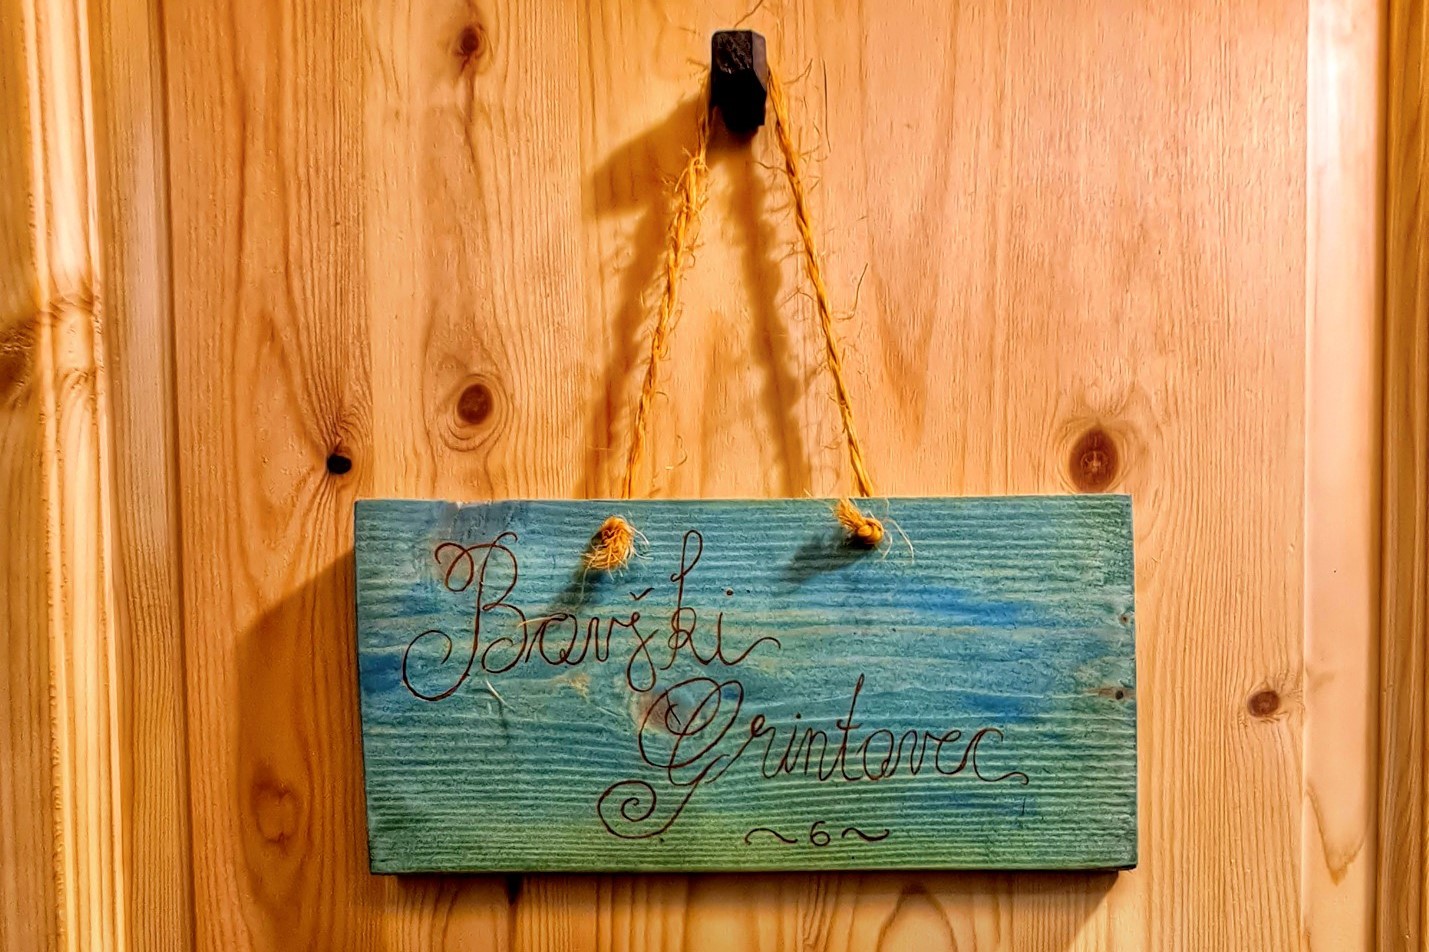 Bavški
Grintavec
~6~